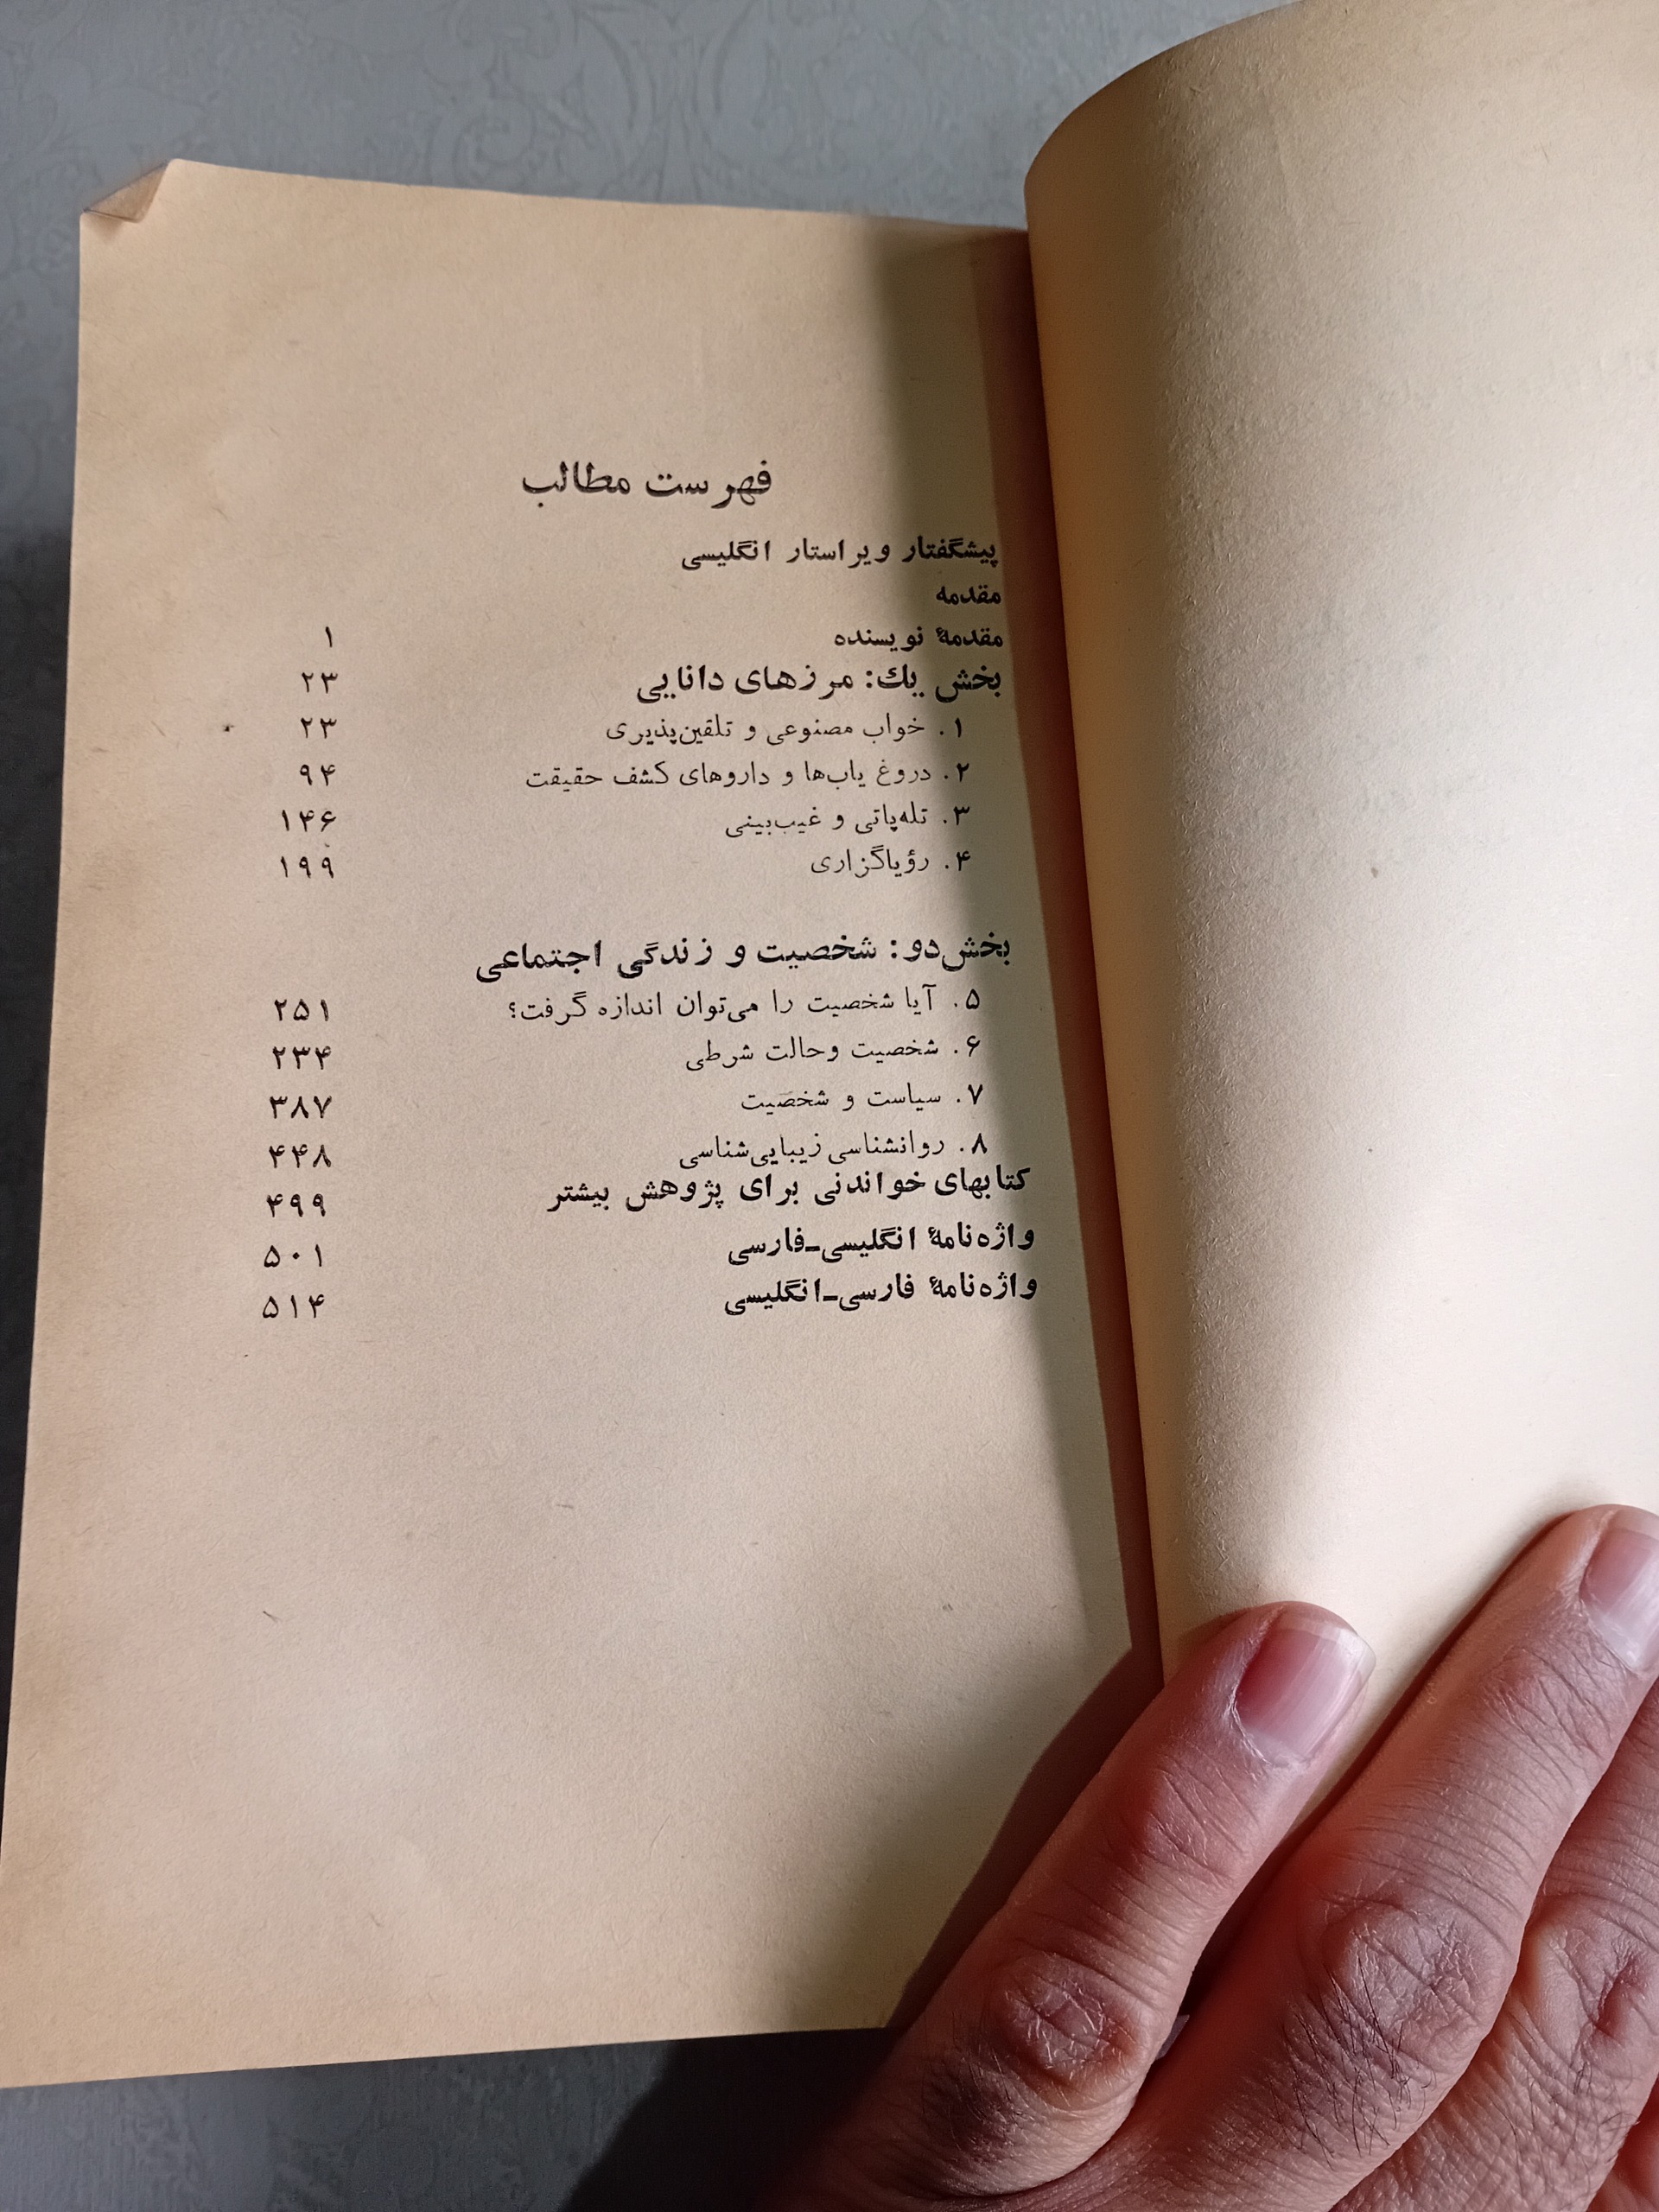 فهرست مطالب
پیشگفتار ویراستار انگلیسی
مقدمه
مقدمهٔ نویسنده ۱
بخش یك: مرزهای دانایی ۲۳
۱. خواب مصنوعی و تلقین‌پذیری ۲۳
۲. دروغ یاب‌ها و داروهای کشف حقیقت ۹۴
۳. تله‌پاتی و غیب‌بینی ۱۴۶
۴. رؤیاگزاری ۱۹۹
بخش‌دو: شخصیت و زندگی اجتماعی
۵. آیا شخصیت را می‌توان اندازه گرفت؟ ۲۵۱
۶. شخصیت وحالت شرطی ۲۳۴
۷. سیاست و شخصیت ۳۸۷
۸. روانشناسی زیبایی‌شناسی ۴۴۸
کتابهای خواندنی برای پژوهش بیشتر ۴۹۹
واژه‌نامهٔ انگلیسی‌ـ‌فارسی ۵۰۱
واژه‌نامهٔ فارسی‌ـ‌انگلیسی ۵۱۴